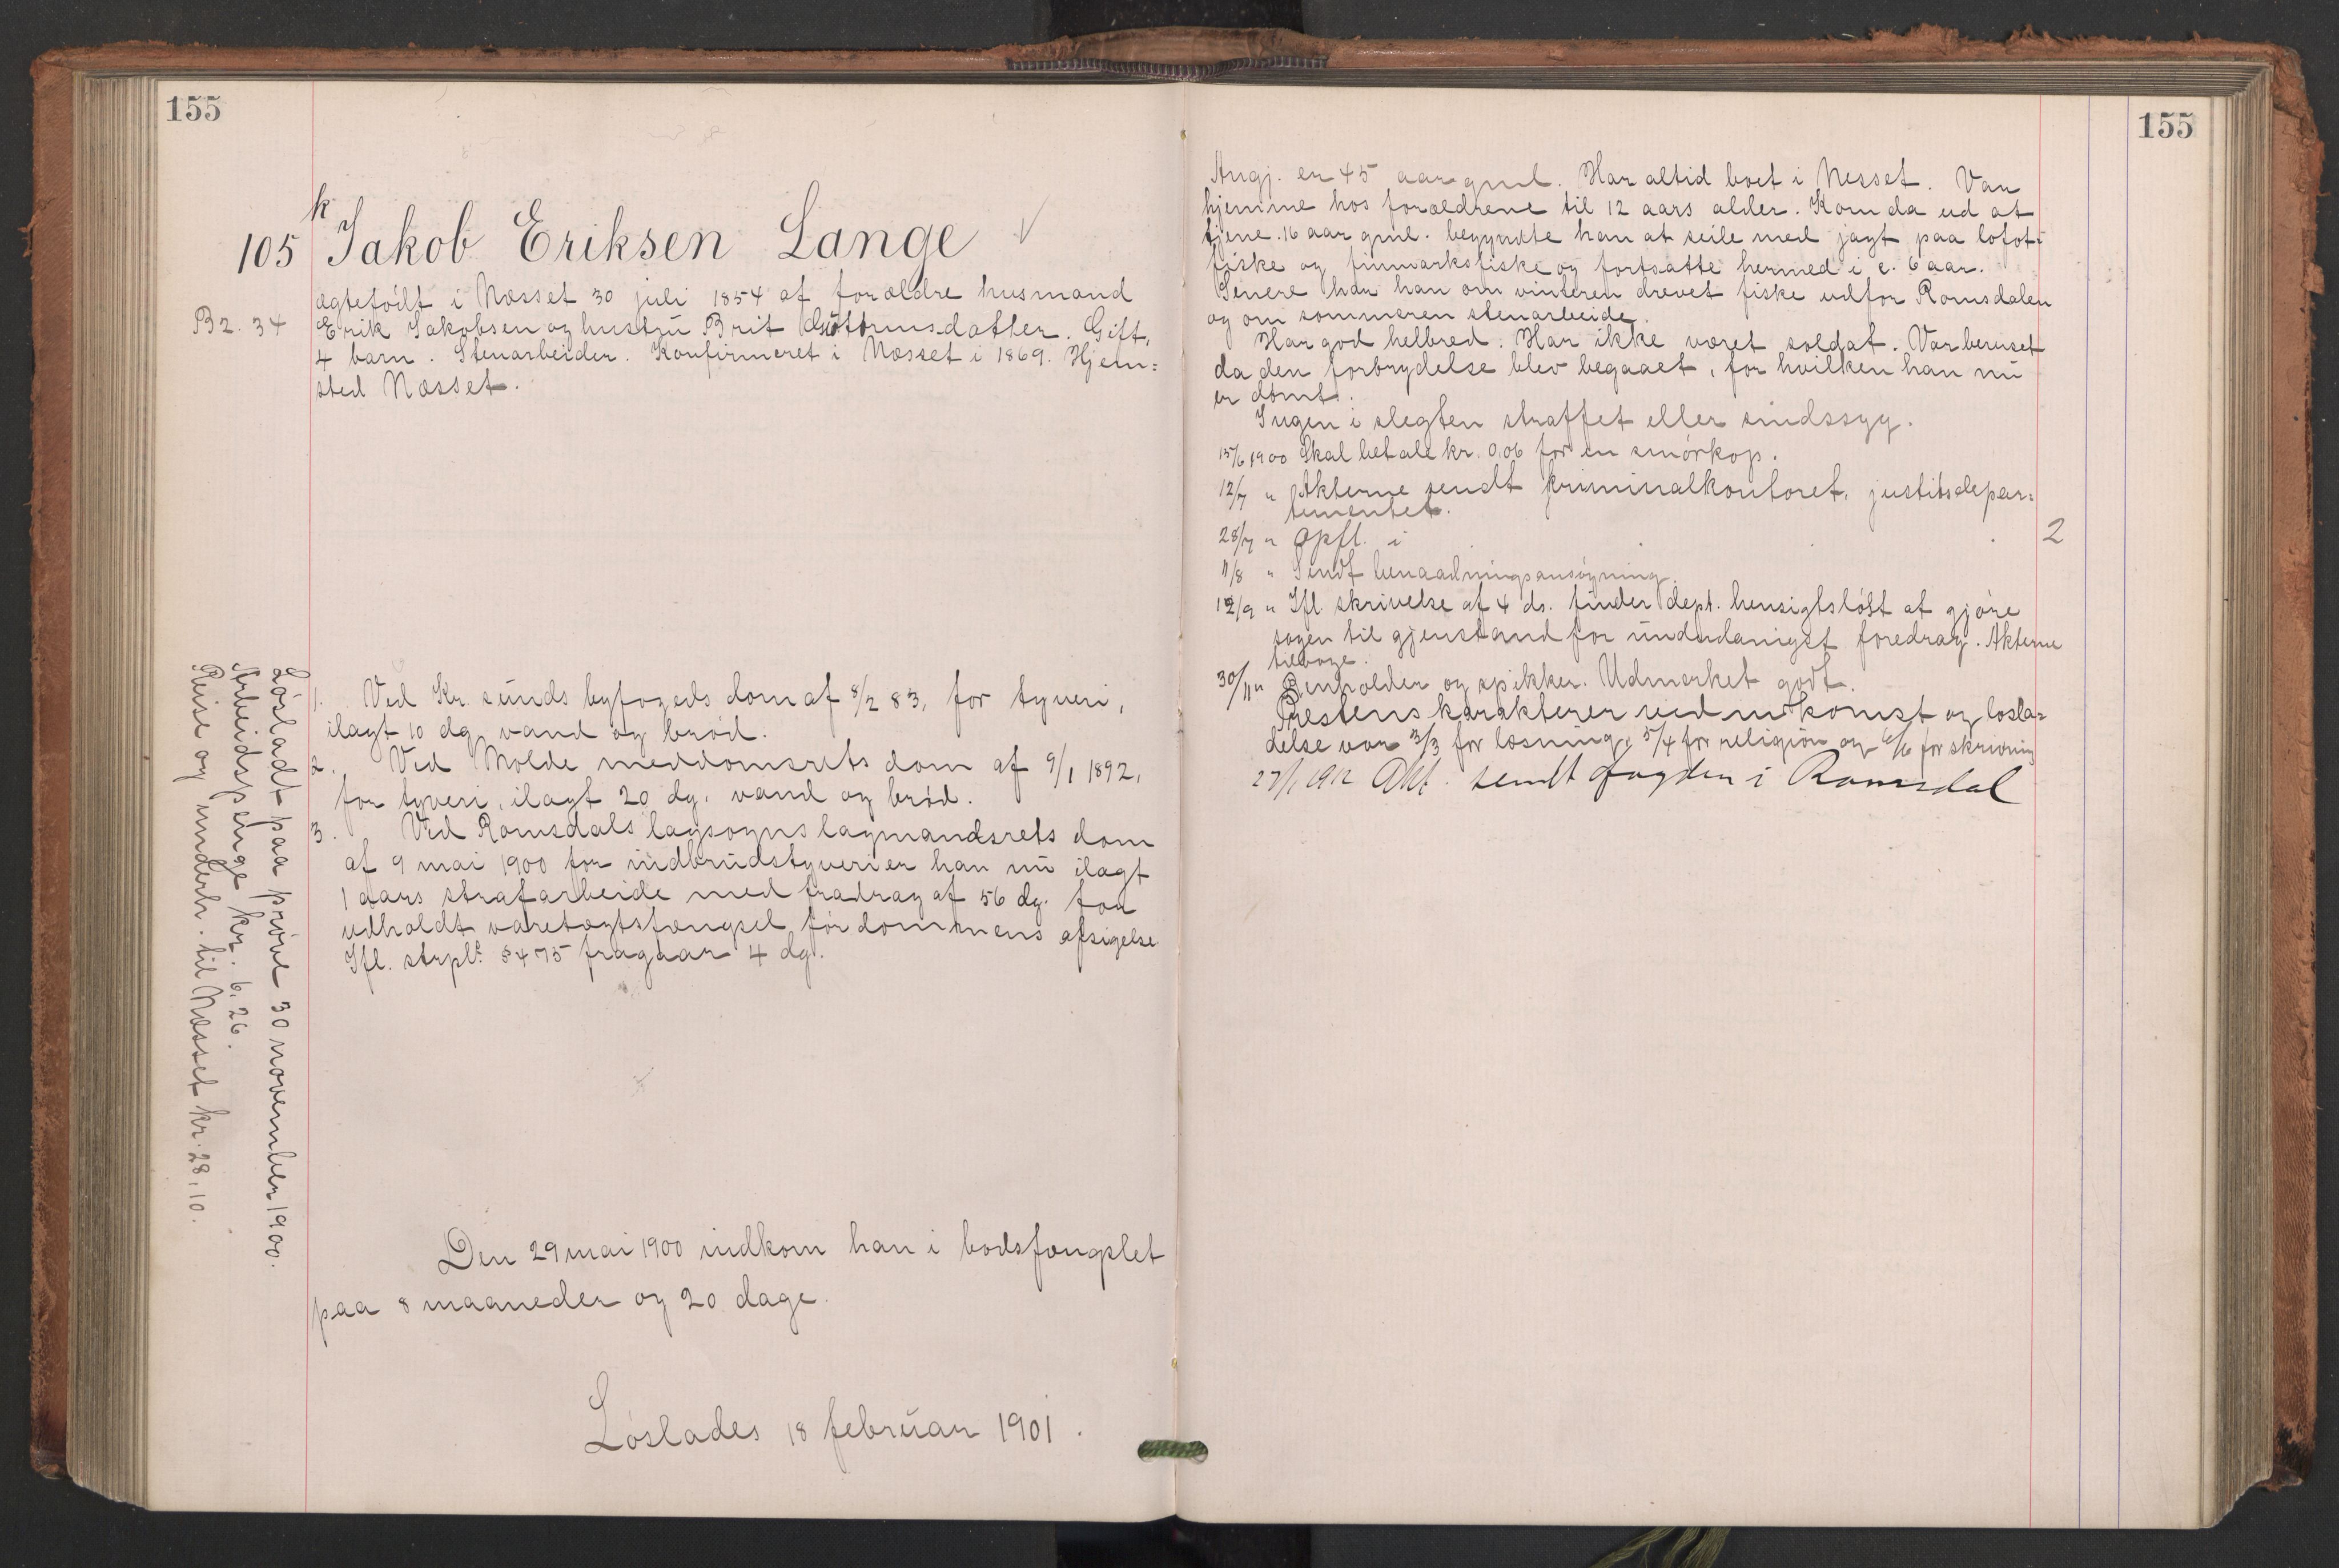 155
k
105 Jakob Eriksen Lange
ægtefödt i Næsset 30 juli 1854 af forældre husmand
B2. 34 Erik Jakobsen og hustru Brit Guttormsdatter. Gift,
4 barn. Stenarbeider. Konfirmeret i Næsset i 1869. Hjem=
sted Næsset.
1. Ved Kr. sunds byfogeds dom af 8/2 83, for tyveri,
ilagt 10 dg. vand og bröd.
2. Ved Molde meddomsrets dom af 9/1 1892,
for tyveri, ilagt 20 dg. vand og bröd.
3. Ved Romsdals lagsogns lagmandsrets dom
af 9 mai 1900 for indbrudstyveri er han nu ilagt
1 aars strafarbeide med fradrag af 56 dg. for
udholdt varetægtsfængsel för dommens afsigelse.
Ifl. strpl. § 475 fragaar 4 dg.
Den 29 mai 1900 indkom han i bodsfængslet
paa 8 maaneder og 20 dage.
Löslades 18 februar 1901.
Lösladt paa pröve 30 november 1900.
Arbeidspenge kr. 6,26.
Reise og underh. til Næsset kr. 28,10.
155
Angj. er 45 aar gml. Har altid boet i Nesset. Var
hjemme hos forældrene til 12 aars alder. Kom da ud at
tjene. 16 aar gml. begyndte han at seile med jagt paa lofot=
fiske og finmarksfiske og fortsatte hermed i c. 6 aar.
Senere har han om vinteren drevet fiske udfor Romsdalen
og om sommeren stenarbeide.
Har god helbred. Har ikke været soldat. Var beruset
da den forbrydelse blev begaaet, for hvilken han nu
er dömt.
Ingen i slegten straffet eller sindssyg.
15/6 1900 Skal betale kr. 0,06 for en smörkop.
12/7 " Akterne sendt kriminalkontoret, justitsdepar=
tementet.
28/7 " Opfl. i 2
11/8 " Sendt benaadningsansögning.
12/9 " Ifl. skrivelse af 4 ds. finder dept. hensigtslöst at gjöre
sagen til gjenstand for underdanigst foredrag. Akterne
tilbage.
30/11 " Renholder og spikker. Udmerket godt.
Prestens karakterer ved indkomst og losla=
delse var 3/3 for læsning, 5/4 for religion og 6/6 for skrivning
27/1 1912 Akt. sendt fogden i Romsdal